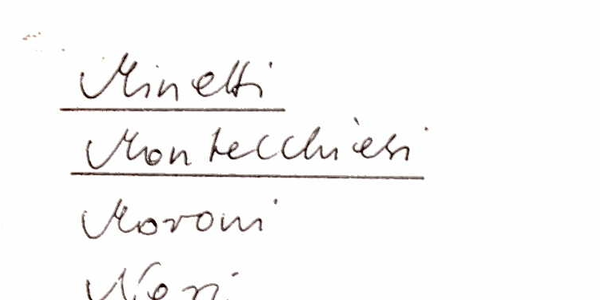 Minetti
Montecchiesi
Moroni
Neri